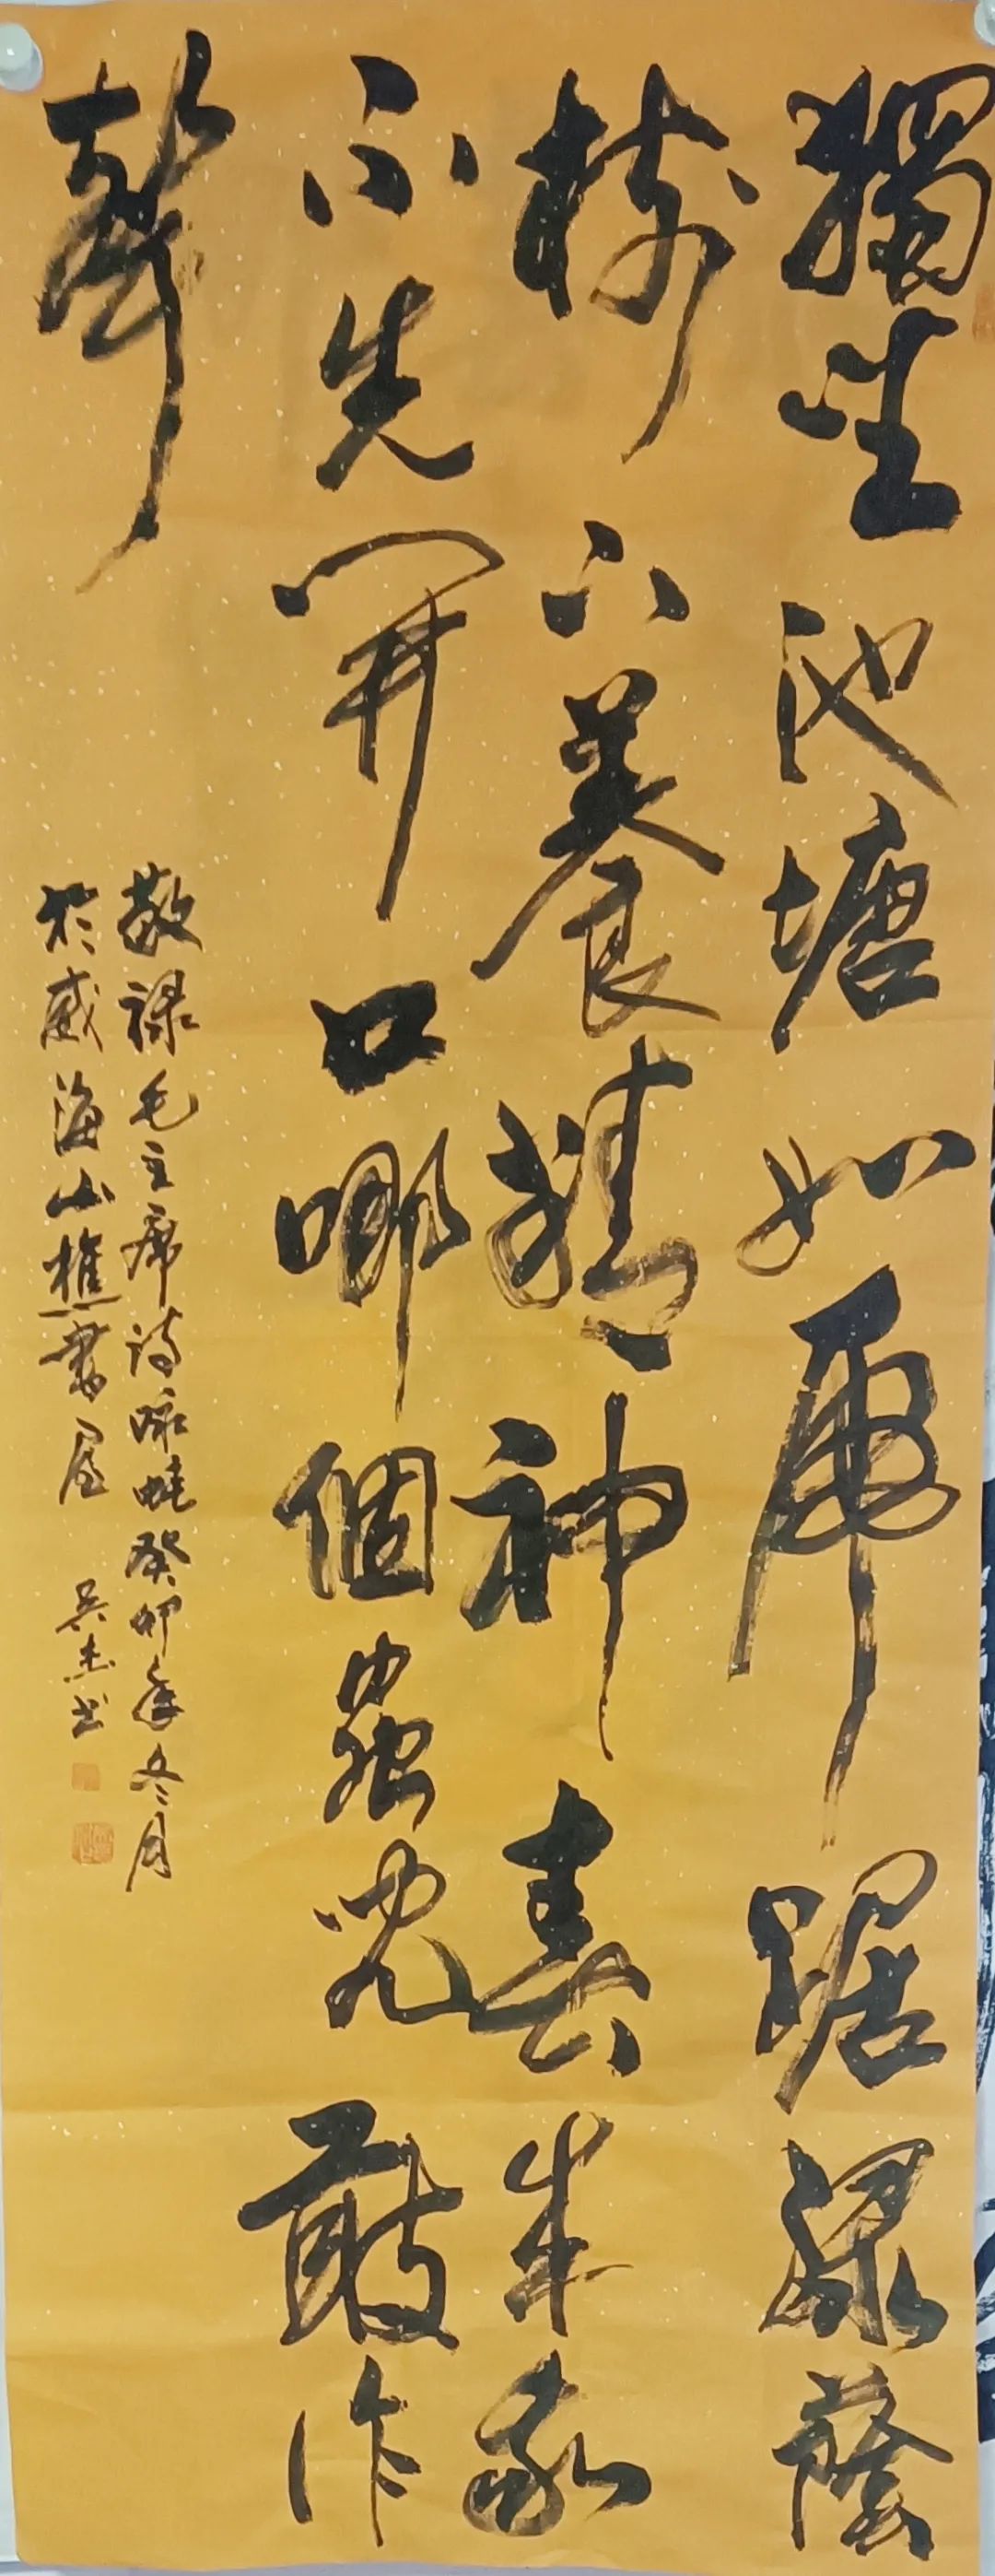 獨坐池塘如虎踞綠蔭
樹下養精神春來我
不先開口哪個蟲兒敢作
聲
敬祿毛主席詩咏蛙癸卯年冬月
於威海山樵書屋 吳杰书